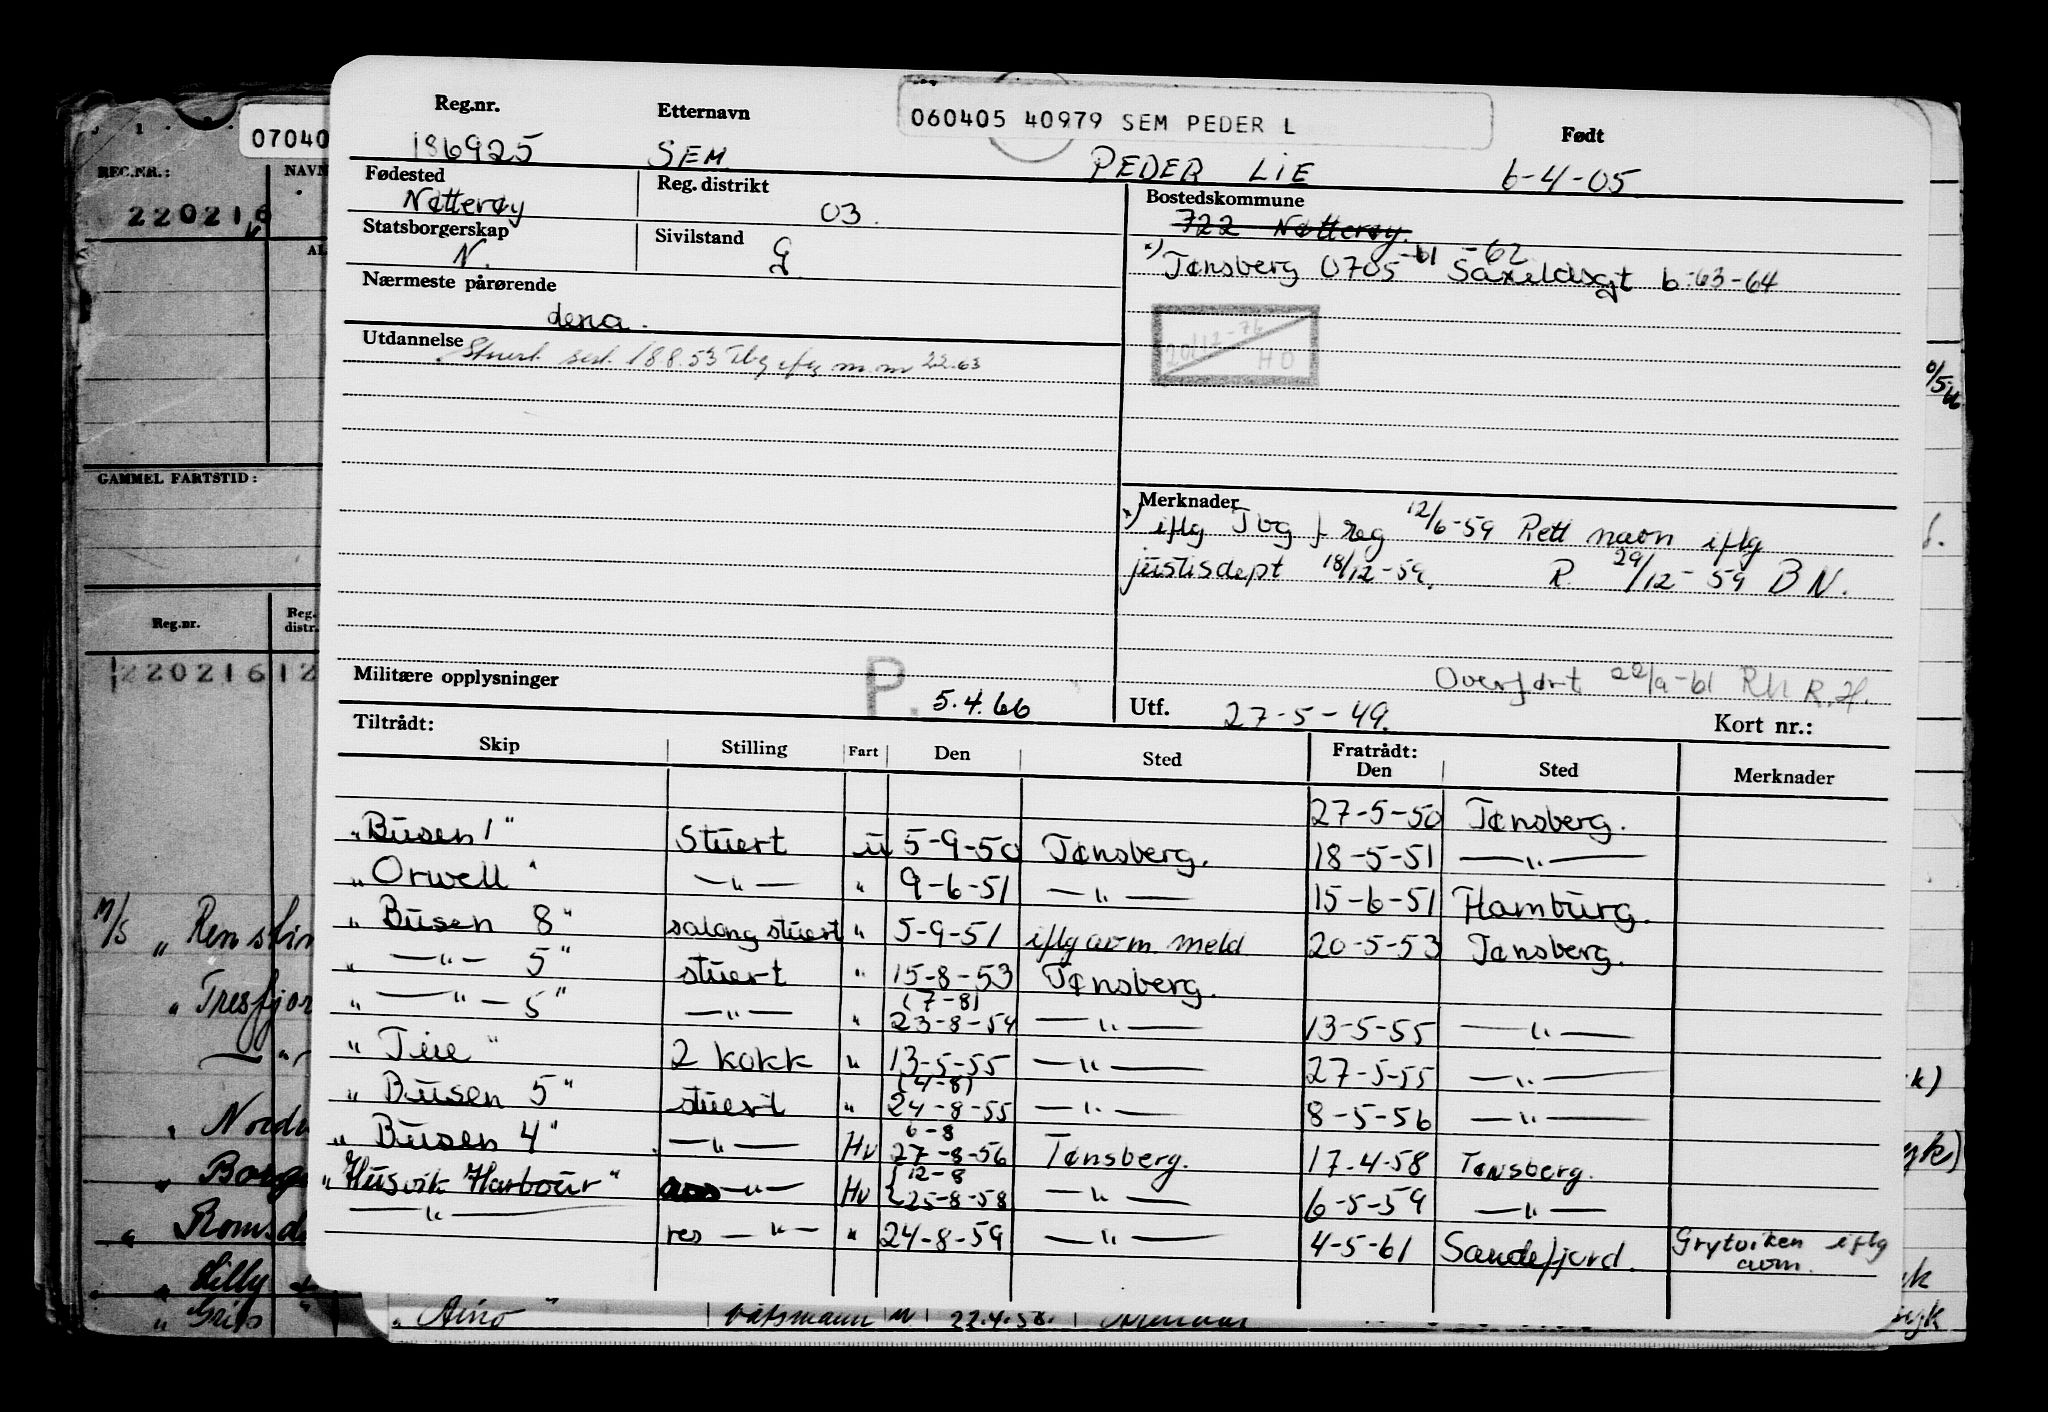 060405 40979 SEM PEDER L
Reg.nr. Etternavn Født
186925 SEM PEDER LIE 6-4-05
Fødested Reg. distrikt Bostedskommune
Nøtterøy 03. 722 Nøtterøy.
Statsborgerskap Sivilstand
N. G
x) Tønsberg 0705 -61 -62 b -63-64
Nærmeste pårørende
dena.
Utdannelse
Stuert sert. 18.8.53 Tbg iflg m.m 22.63
20/12-76
HO
Merknader
x) iflg Tbg f reg 12/6-59 Rett navn iflg
justisdept 18/12-59. R. 29/12-59 BN.
Overført 22/9-61 RH R.H.
Militære opplysninger P. 5.4.66 Utf. 27-5-49. Kort nr.:
Tiltrådt: Fratrådt:
Skip Stilling Fart Den Sted Den Sted Merknader
27-5-50 Tønsberg.
"Busen 1" Stuert u 5-9-50 Tønsberg. 18-5-51 —"—
"Orwell" —"— " 9-6-51 —"— 15-6-51 Hamburg.
"Busen 8" salong stuert " 5-9-51 iflg avm. meld 20-5-53 Tønsberg.
" —"— 5" stuert " 15-8-53 Tønsberg.
" —"— 5" —"— " (7-8) 23-8-54 —"— 13-5-55 —"—
" Tiue " 2 kokk " 13-5-55 —"— 27-5-55 —"—
" Busen 5" stuert " (4-8) 24-8-55 —"— 8-5-56 —"—
" Busen 4" —"— Hv 6-8 27-8-56 Tønsberg. 17.4-58 Tønsberg.
"Husvik Harbour" —"— Hv 12-8 25-8-58 —"— 6-5-59 —"—
—"— res —"— " 24-8-59 —"— 4-5-61 Sandefjord. Grytviken iflg
avm.
07040
REG.NR.: NAVN
220216
AL
GAMMEL FARTSTID:
Reg.nr. Reg. distr.
220216 12
M/S
" Tresfjor
" Nordv
" Borg
" Romsd
" Lilly
" Grib
" Aino " båtsmann N 22.4.58.
0/5-66